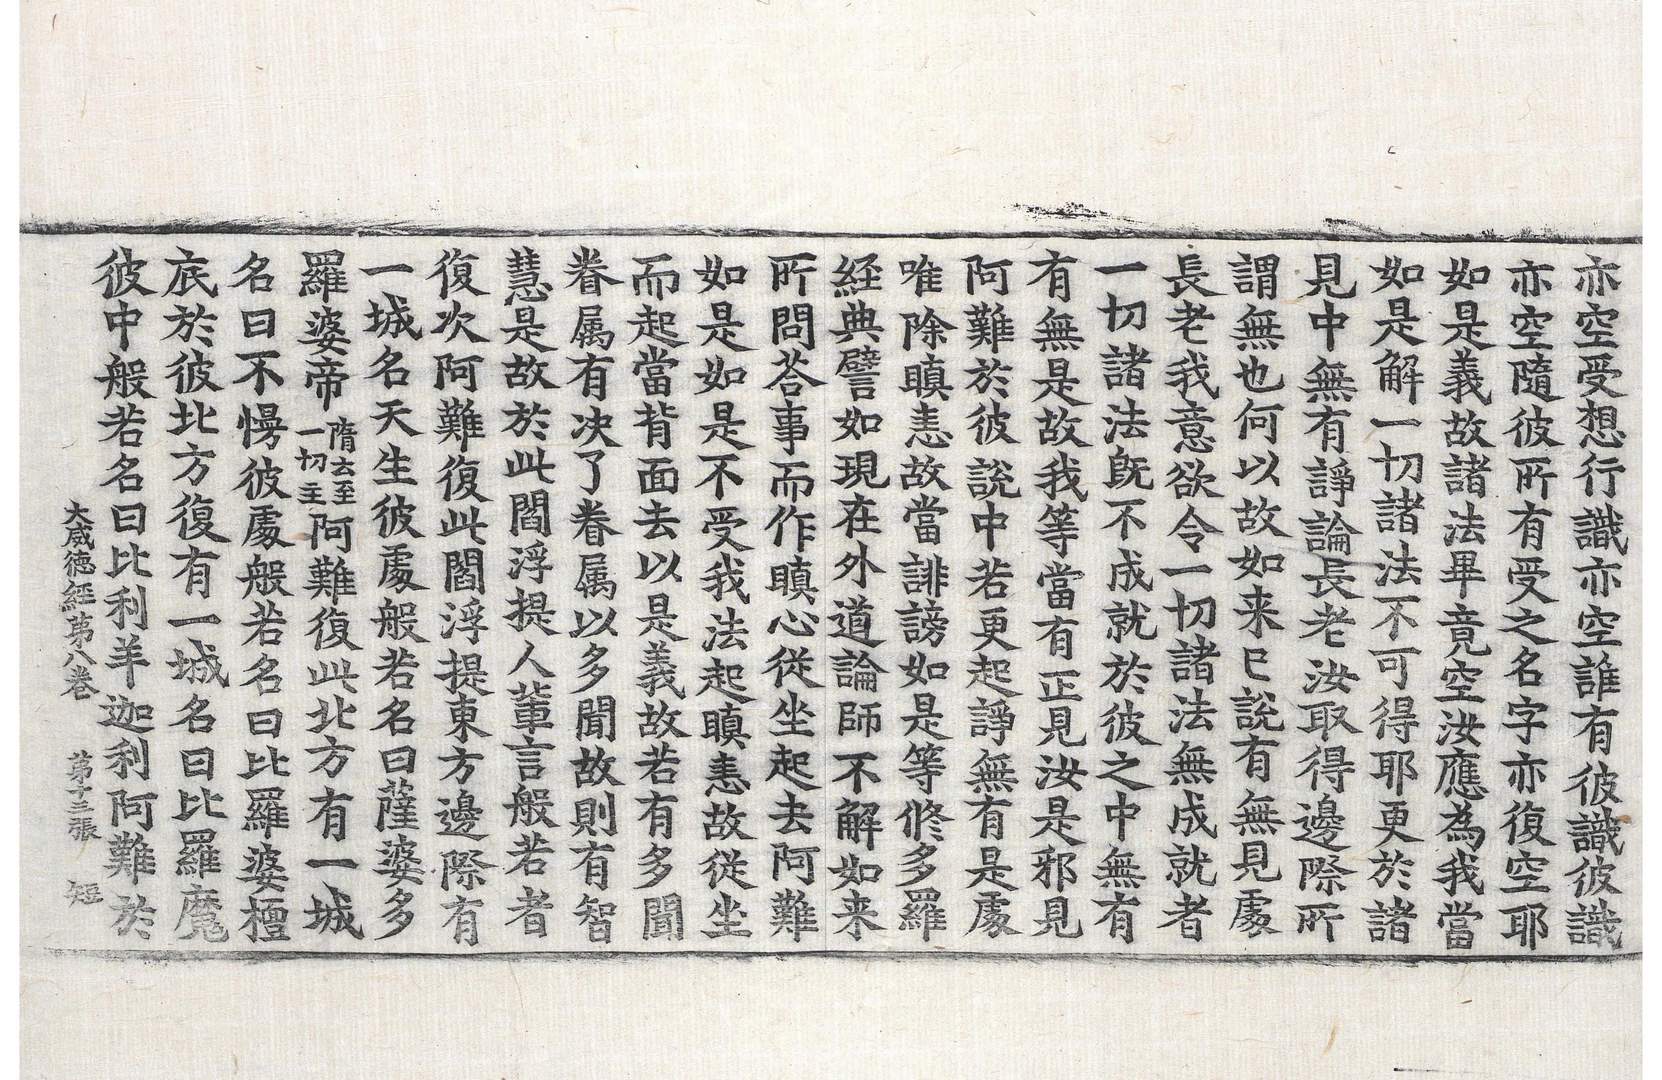 亦空受想行識亦空誰有彼識彼識
亦空隨彼所有受之名字亦復空耶
如是義故諸法畢竟空汝應為我當
如是解一切諸法不可得耶更於諸
見中無有諍論長老汝取得邊際所
謂無也何以故如来已說有無見處
長老我意欲令一切諸法無成就者
一切諸法旣不成就於彼之中無有
有無是故我等當有正見汝是邪見
阿難於彼說中若更起諍無有是處
唯除瞋恚故當誹謗如是等修多羅
経典譬如現在外道論師不解如来
所問荅事而作瞋心従坐起去阿難
如是如是不受我法起瞋恚故従坐
而起當背面去以是義故若有多聞
眷属有决了眷属以多聞故則有智
慧是故於此閻浮提人軰言般若者
復次阿難復此閻浮提東方邊際有
一城名天生彼處般若名曰薩婆多
羅婆帝隋云至一切主阿難復此北方有一城
名曰不慢彼處般若名曰比羅婆檀
底於彼北方復有一城名曰比羅魔
彼中般若名曰比利羊迦利阿難於
大威德経第八卷 第十三張 短